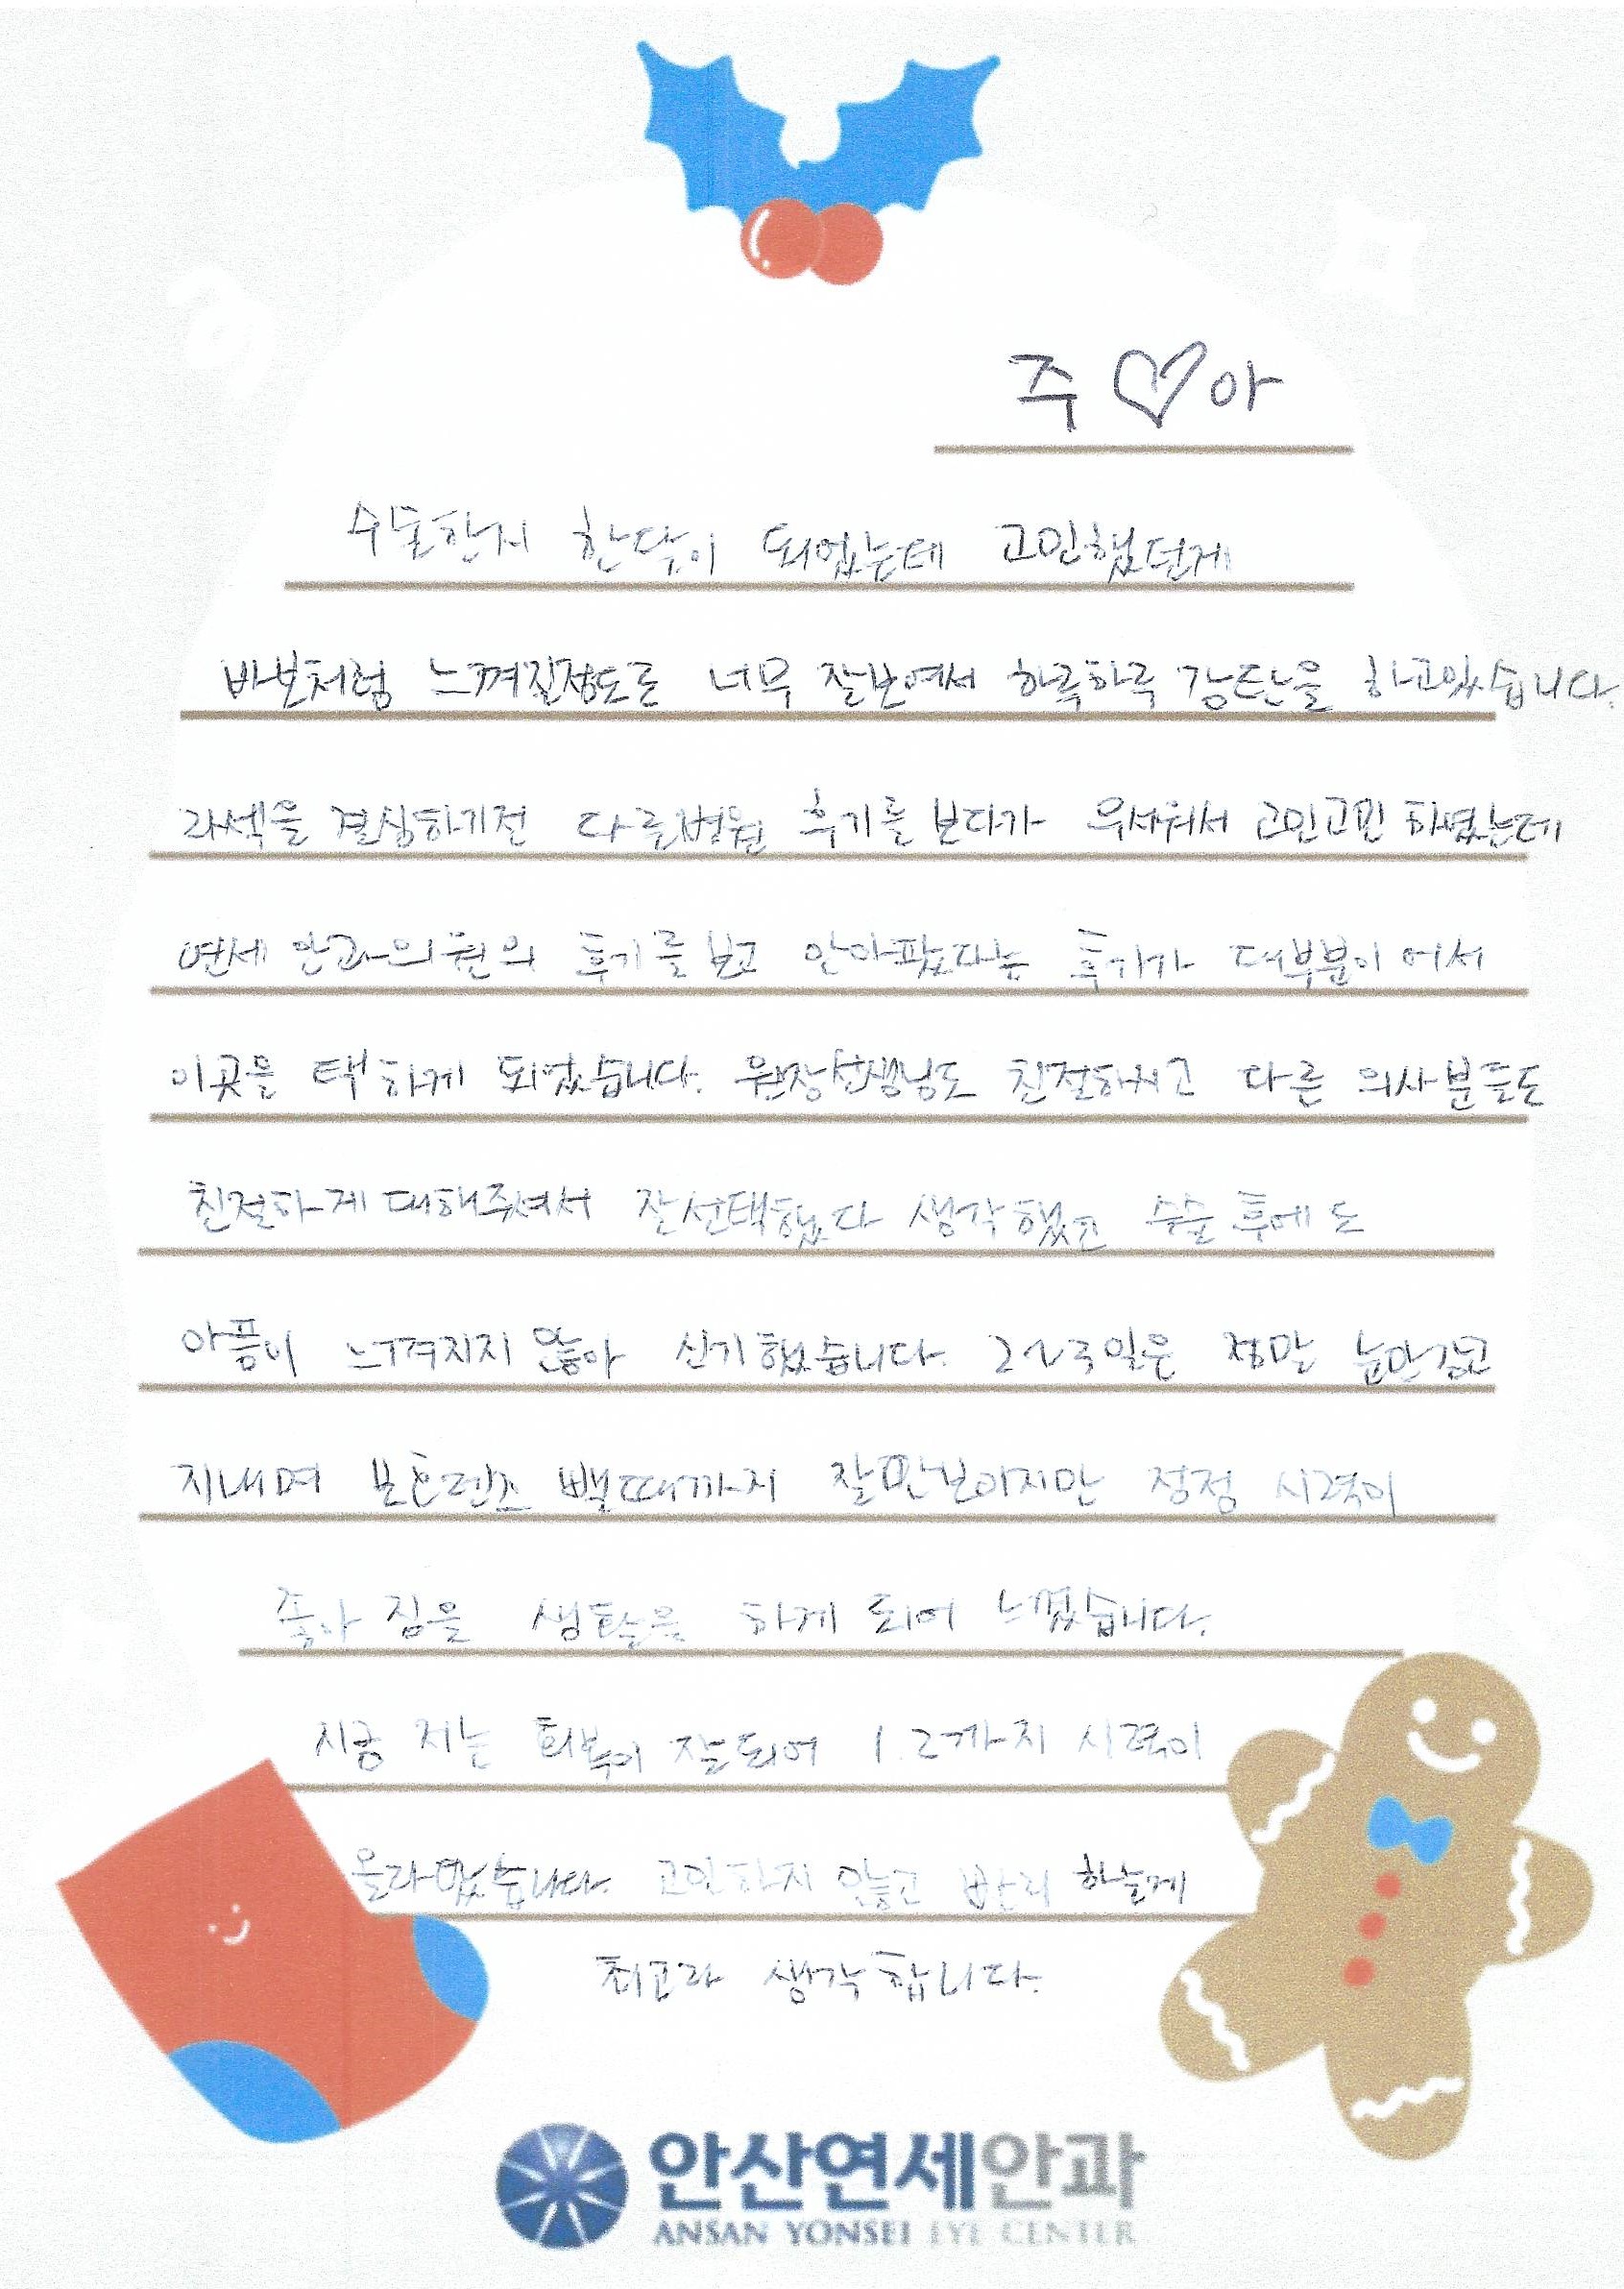 주♡아
수술한지 한달이 되었는데 고민했던게
바보처럼 느껴질정도로 너무 잘보여서 하루하루 감탄을 하고있습니다.
라섹을 결심하기전 다른병원 후기를 보다가 무서워서 고민고민 하였는데
연세 안과의원의 후기를 보고 안아팠다는 후기가 대부분이어서
이곳을 택하게 되었습니다. 원장선생님도 친절하시고 다른 의사분들도
친절하게 대해주셔서 잘선택했다 생각했고 수술 후에도
아픔이 느껴지지 않아 신기했습니다. 2~3일은 정말 눈만감고
지내며 보호렌즈 뺄때까지 잘안보이지만 점점 시력이
좋아 짐을 생활을 하게 되어 느꼈습니다.
지금 저는 회복이 잘되어 1.2까지 시력이
올라왔습니다. 고민하지 않고 빨리 하는게
최고라 생각합니다.
안산연세안과
ANSAN YONSEI EYE CENTER